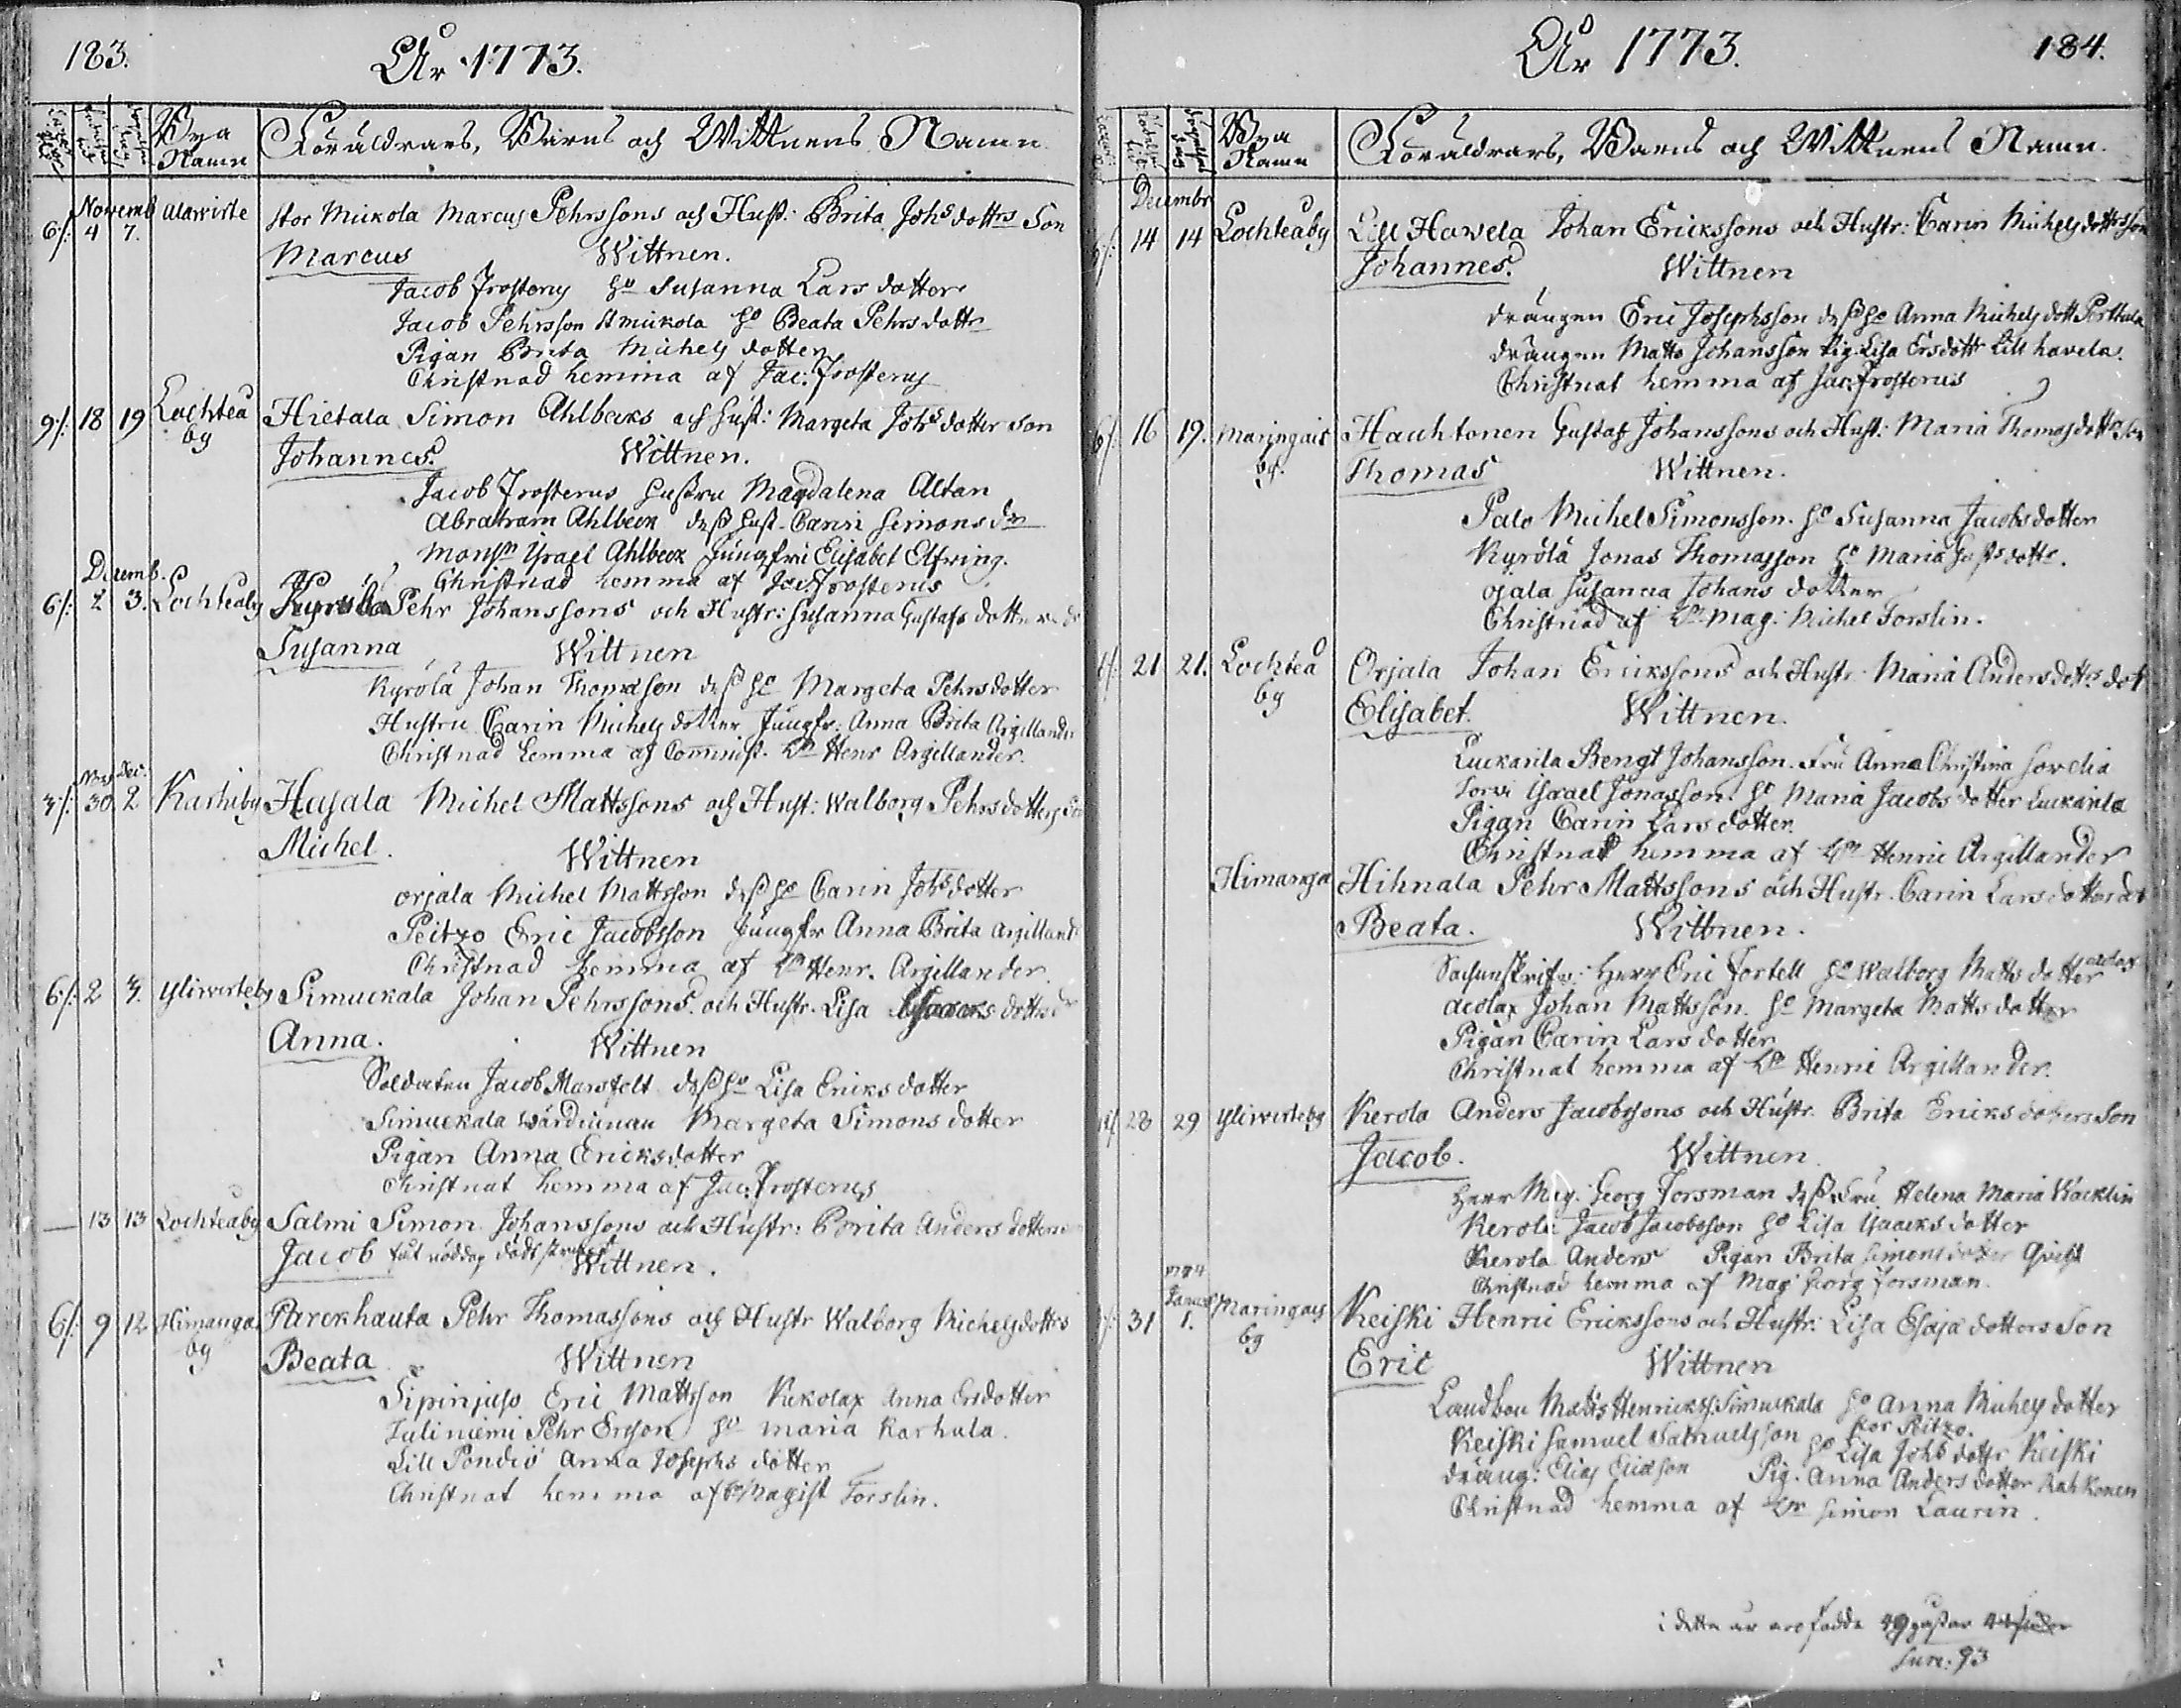 183.
År 1773.
Bya Namn
Föräldrars, Barns och Wittnens Namn
Novemb
6/. 4 7. Alawirte stor Mickola Marcus Pehrssons och Hust: Brita Johsdottrs Son
Marcus Wittnen.
Jacob Frosterus Ho Susanna Lars dotter
Jacob Pehrsson St mickola Ho Beata Pehrs dottr
Pigan Brita Michels dotter
Christnad hemma af Jac: Frosterus
9/. 18 19 Lochtea by Hietala Simon Ahlbecks och Hust: Margeta Johs dotter Son
Johannes. Wittnen.
Jacob Frosterus Hustru Magdalena Altan
Abraham Ahlbeck dess Hust. Carin Simons dr
Monsr Israel Ahlbeck Jungfru Elisabet Elfving.
Christnad hemma af Jac: Frosterus
Decemb.
6/. 2 3. Lochteaby Kyrölä Pehr Johanssons och Hustr: Susanna Gustafs dotters
Susanna Wittnen
Kyrölä Johan Thomasson dess Ho Margeta Pehrsdotter
Hustru Carin Michels dotter Jungfr: Anna Brita Argillander
Christnad hemma af Comminist. Hr Henr Argillander.
Nov Dec.
3/. 30 2 Karhiby Hasala Michel Mattssons och Hust: Walborg Pehrsdotters
Michel. Wittnen
orjala Michel Mattsson dess Ho Carin Johs dotter
Peitzo Eric Jacobsson Jungfr Anna Brita Argilland
Christnad hemma af Hr Henr. Argillander
6/. 2 3. Yliwirteby Simuckala Johan Pehrssons och Hustr. Lisa Isaacks dotters
Anna. Wittnen
Soldaten Jacob Marsfelt dess Ho Lisa Ericks dotter
Simuckala wärdinnan Margeta Simons dotter
Pigan Anna Ericksdotter
Christnat hemma af Jac: Frosterus
— 13 13 Lochteaby Salmi Simon Johanssons och Hustr: Brita Anders dotters
Jacob Wittnen.
6/. 9 12 Himanga by Parckhauta Pehr Thomassons och Hustr Walborg Michelsdottrs
Beata Wittnen
Sipinjuss Eric Mattsson Kickolax Anna Ersdotter
Juliniemi Pehr Ersson Ho Maria Karhula.
Lill Pondis Anna Josephs dotter
Christnat hemma af Hr Magist Forslin.
År 1773.
184.
Bya Namn
Föräldrars, Barns och Wittnens Namn.
Decembr
14 14 Lochteaby Lill Hawela Johan Erickssons och Hustr: Carin Michelsdottrs Son
Johannes. Wittnen
drängen Eric Josephsson dess Ho Anna Michels dott Perttula
drängen Matts Johansson Pig. Lisa Ersdottr Lill havela.
Christnat hemma af Jac: Frosterus
6/. 16 19. Maringais by. Hauhtonen Gustaf Johanssons och Hust: Maria Thomasdottr Son
Thomas Wittnen.
Palo Michel Simonsson. Ho Susanna Jacobs dotter
Kyrölä Jonas Thomasson Ho Maria Gustsdottr.
ojala Susanna Johans dotter
Christnad af Hr Mag: Michel Forslin.
21 21. Lochtea by Orjala Johan Erickssons och Hustr Maria Andersdottrs dot
Elisabet. Wittnen.
Luckarila Bengt Johansson. Fru Anna Christina Sovelia
Torvi Israel Jonasson. Ho Maria Jacobs dotter Luckarila
Pigan Carin Lars dotter.
Christnad hemma af Hr Henric Argillander
Himanga Hihnala Pehr Mattssons och Hustr. Carin Lars dotters dot
Beata. Wittnen.
Sockenskrifw: Herr Eric Fortell Ho Walborg Matts dotter aeolax
aeolax Johan Mattsson. Ho Margeta Matts dotter
Pigan Carin Lars dotter
Christnat hemma af Hr Henric Argillander.
28 29 Yliwirteby Kerola Anders Jacobssons och Hustr. Brita Ericks dotters Son
Jacob. Wittnen
Herr Mag. Georg Forsman dess Fru Helena Maria Wacklin
Kerola Jacob Jacobsson Ho Lisa Isaacks dotter
Kerola Anders Pigan Brita Simons dotter Qvist
Christnad hemma af Mag Georg Forsman.
1774 Januar
31 1. Maringais by Keiski Henric Erickssons och Hustr: Lisa Esaja dotters Son
Eric Wittnen
Landbon Matts Henrickss. Simuckala Ho Anna Michels dotter stor Peitzo.
Keiski Samuel Samuelsson Ho Lisa Johs dottr Keiski
dräng: Elias Elidsson Pig. Anna Anders dotter Kahkonen
Christnad hemma af Hr Simon Laurin.
i detta år äro födde 49 gossar 44 flickor
Sum: 93